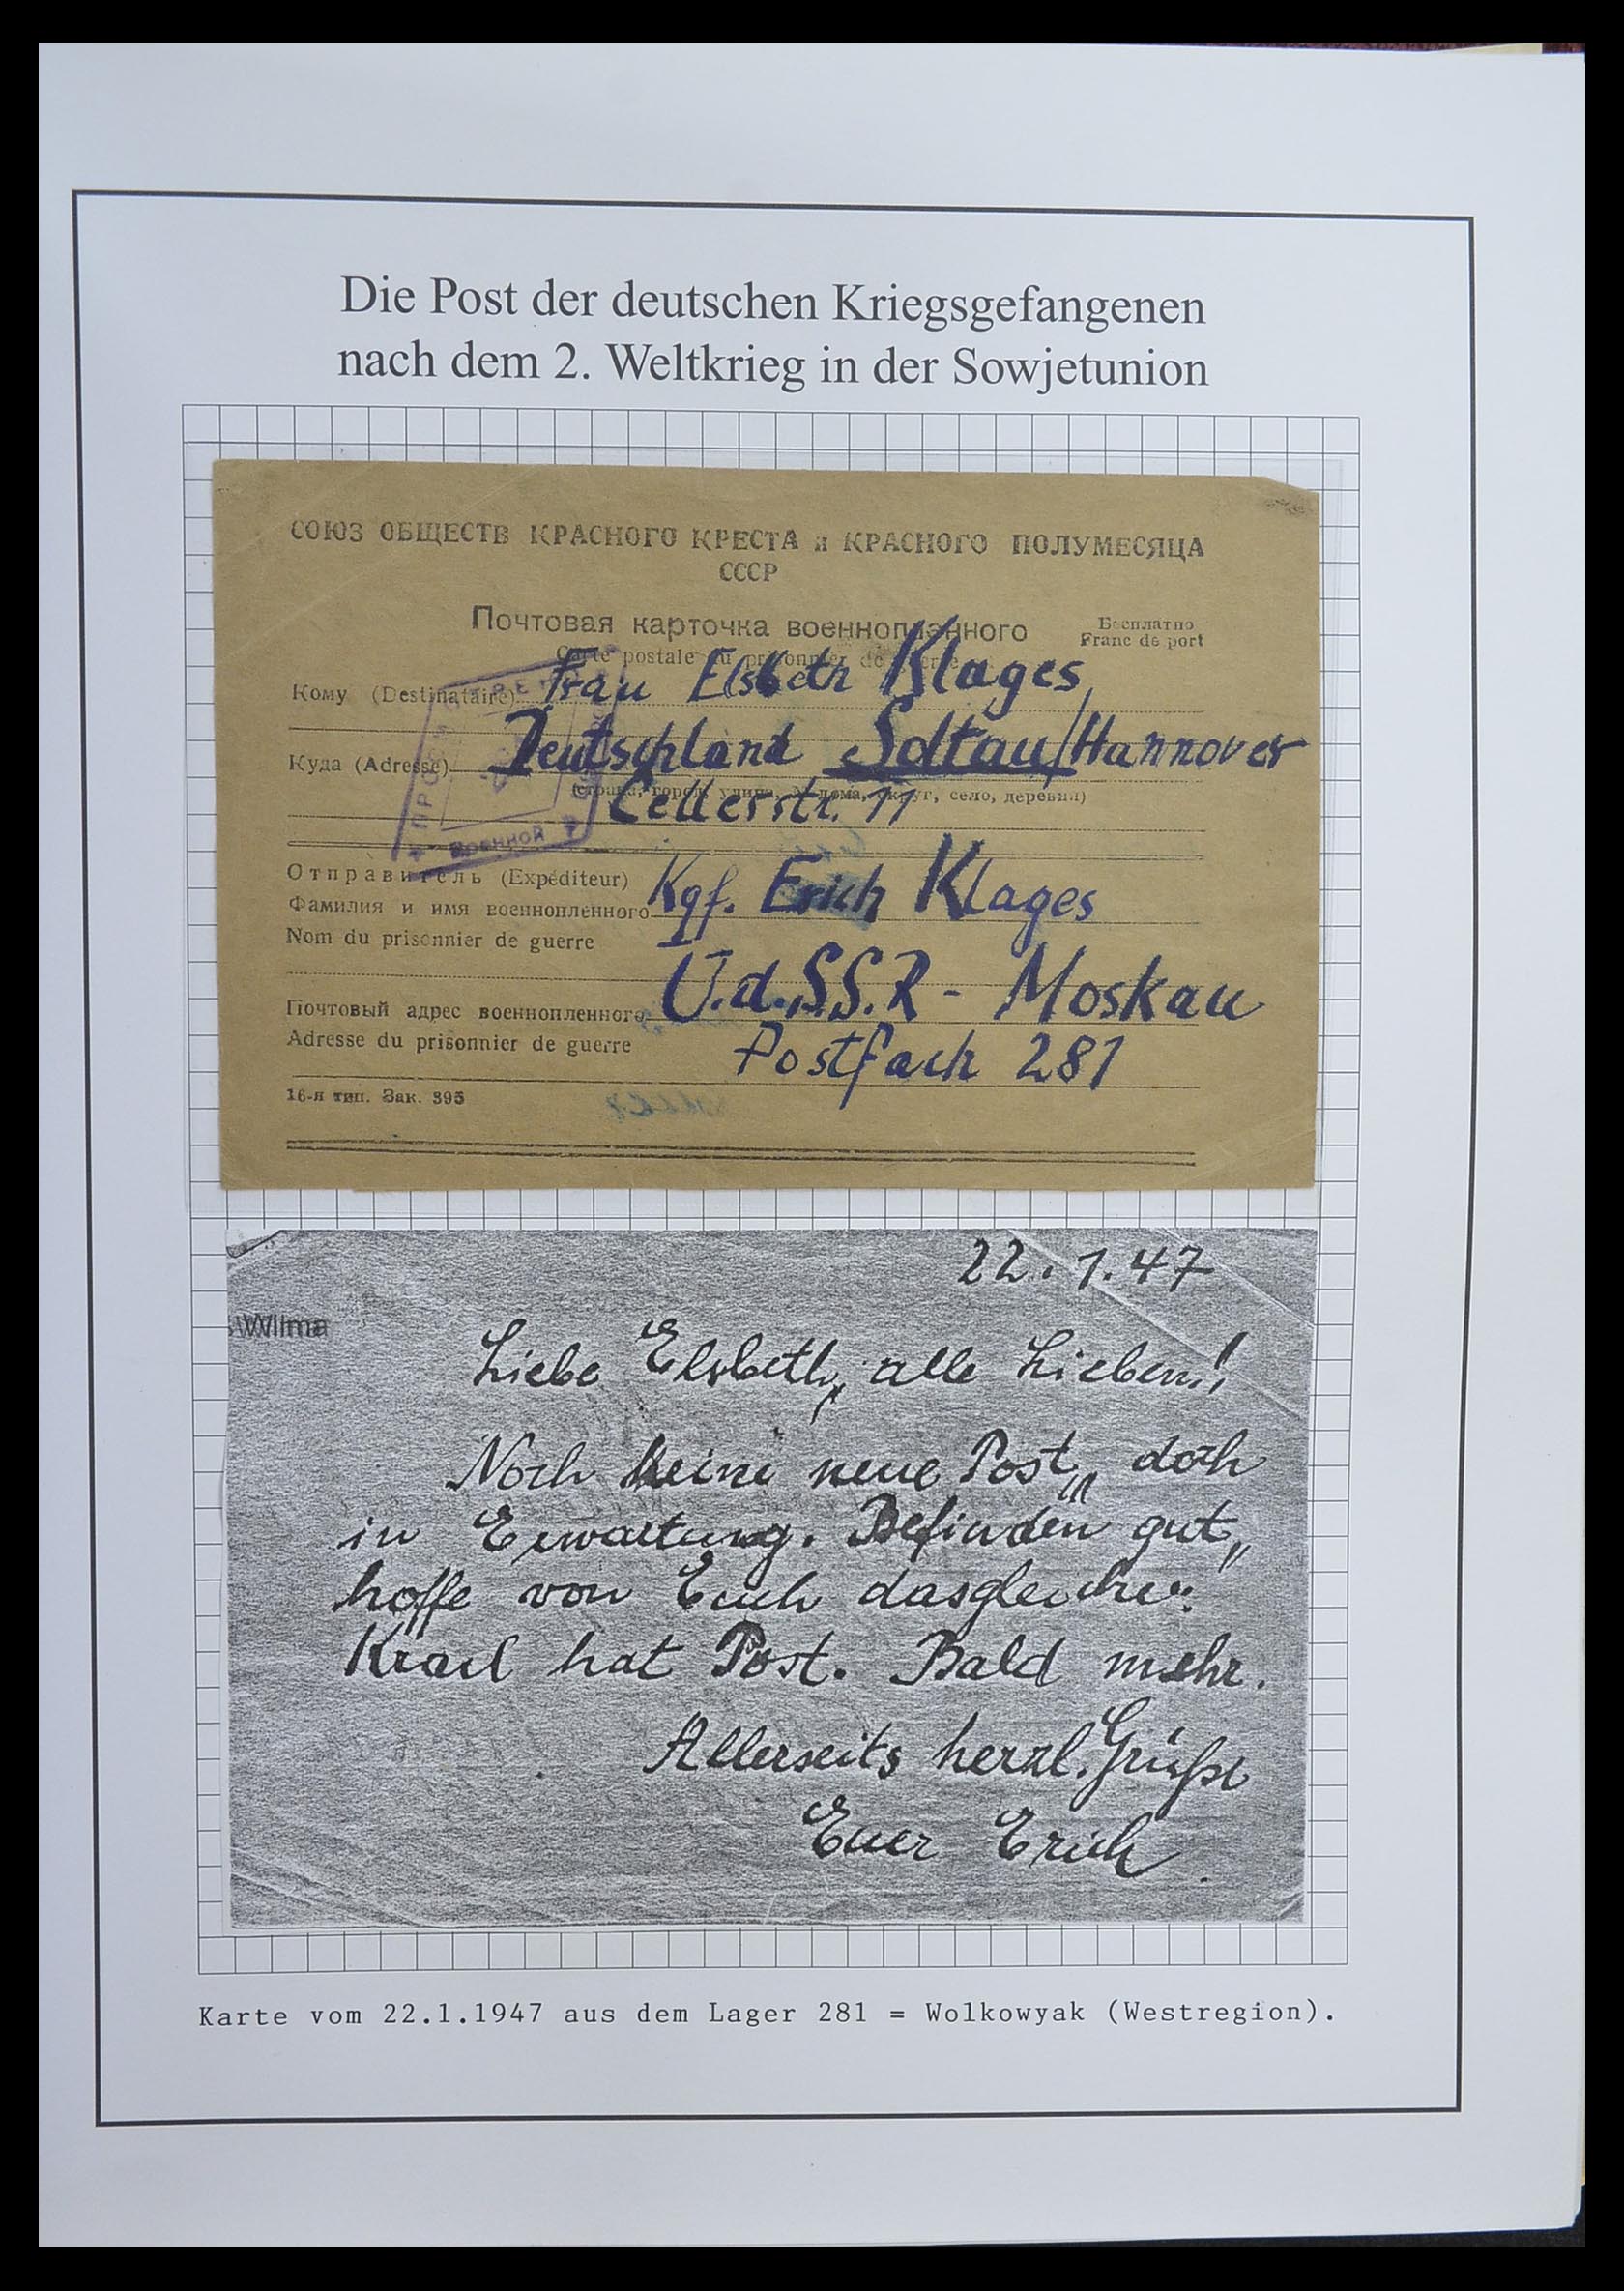 Die Post der deutschen Kriegsgefangenen
nach dem 2. Weltkrieg in der Sowjetunion
СОЮЗ ОБЩЕСТВ КРАСНОГО КРЕСТА и КРАСНОГО ПОЛУМЕСЯЦА
СССР
Почтовая карточка военнопленного
Бесплатно
Franc de port
Carte postale du prisonnier de guerre
Кому (Destinataire) Frau Elsbeth Klages,
Куда (Adresse) Deutschland Soltau/Hannover
(страна, город, улина, № дома, округ, село, деревня)
Cellerstr. 11
ПРОСМОТРЕНО
Военной
Отправитель (Expéditeur)
Фамилия и имя военнопленного Kgf. Erich Klages
Nom du prisonnier de guerre
Почтовый адрес военнопленного U.d.S.S.R - Moskau
Adresse du prisonnier de guerre Postfach 281
16-я тип. Зак. 395
22.1.47
Wilma
Liebe Elsbeth, alle Lieben!!
Noch keine neue Post, doch
in Erwartung. Befinden gut,
hoffe von Euch dasgleiche.
Karl hat Post. Bald mehr.
Allerseits herzl. Grüße
Euer Erich
Karte vom 22.1.1947 aus dem Lager 281 = Wolkowyak (Westregion).